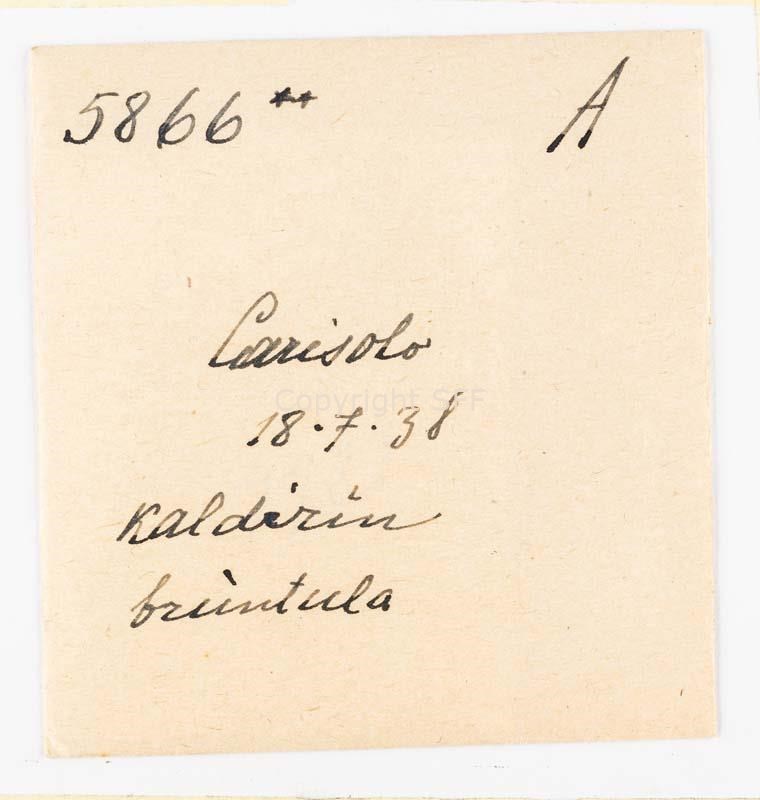 5866** A
Carisolo
Copyright SFF
18.7.38
kaldirin
brùntula